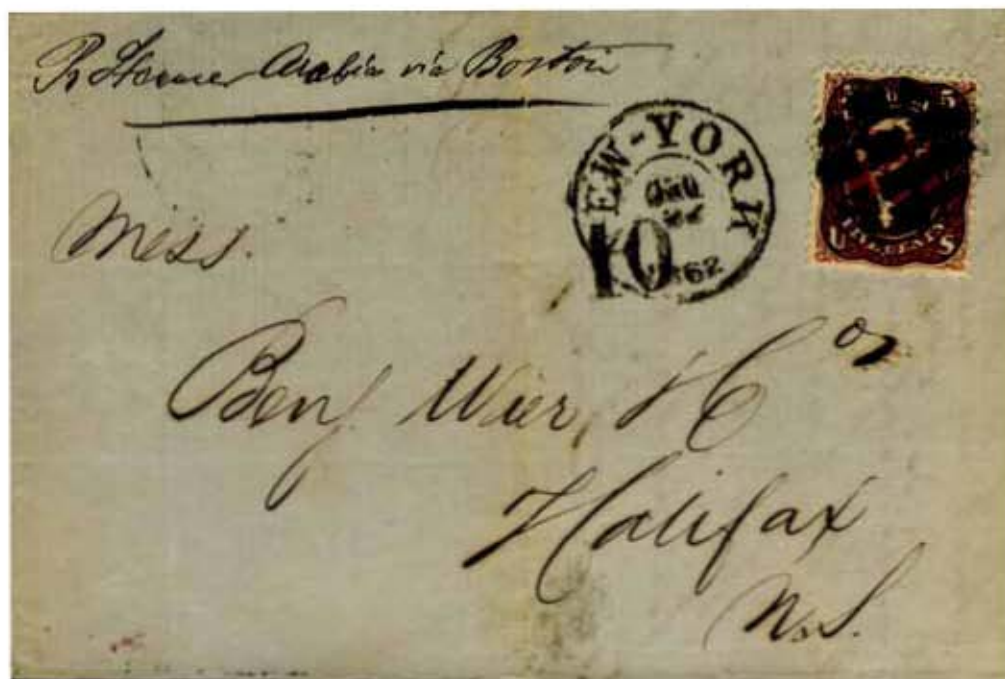 Pr Steamer Arabia via Boston
NEW-YORK
10
1862
U S
FIVE CENTS
Miss.
Benj Wier, & Co
Halifax
N.S.